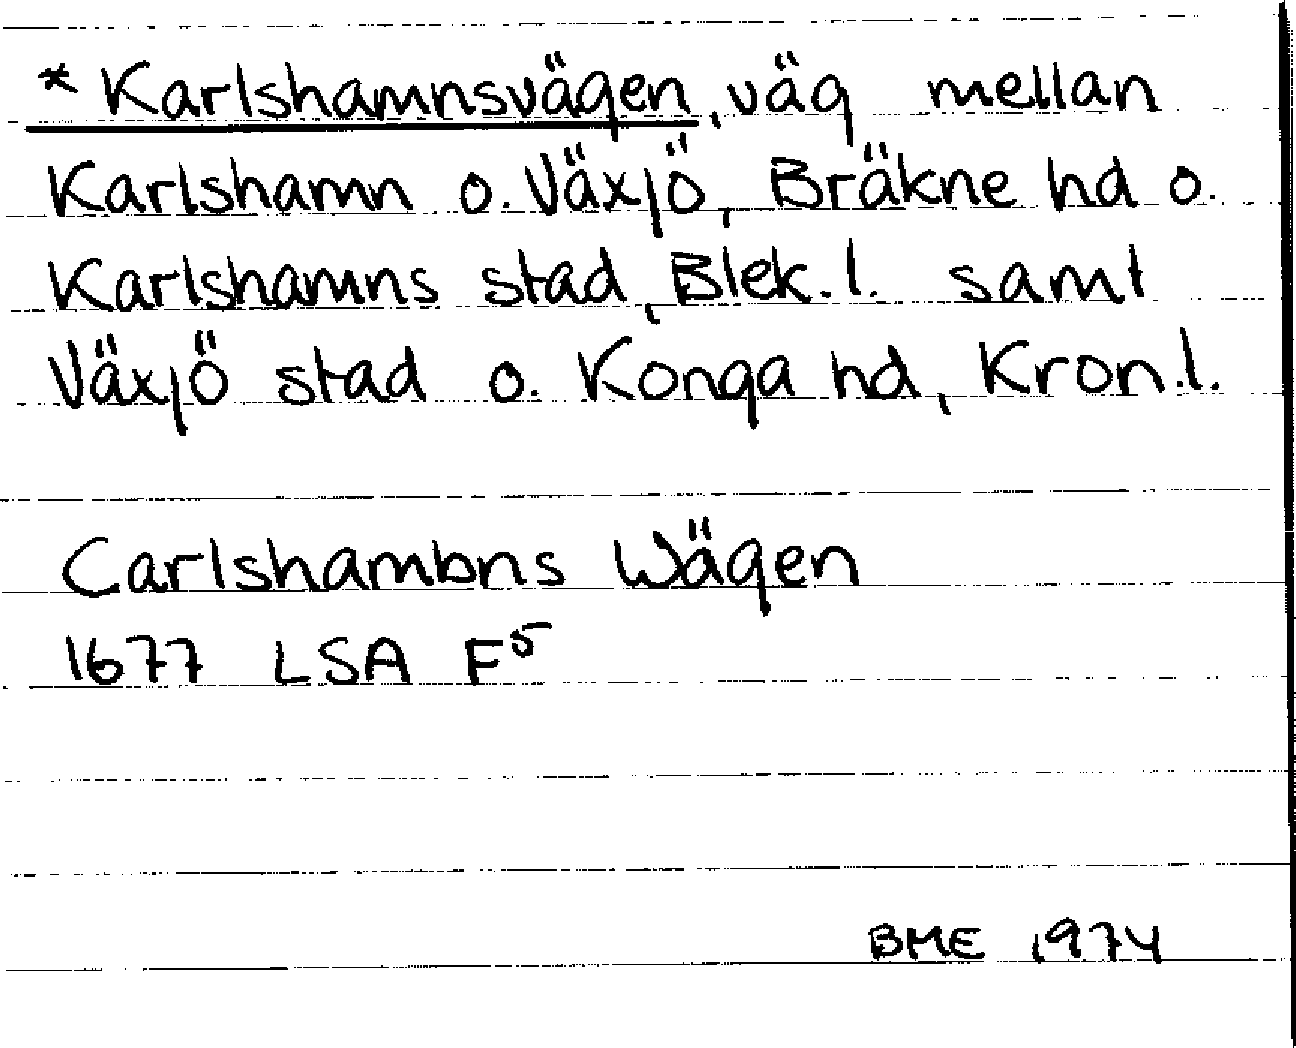 * Karlshamnsvägen, väg mellan
Karlshamn o. Växjö, Bräkne hd o.
Karlshamns stad, Blek. l. samt
Växjö stad o. Konga hd, Kron. l.
Carlshambns Wägen
1677 LSA F⁵
BME 1974